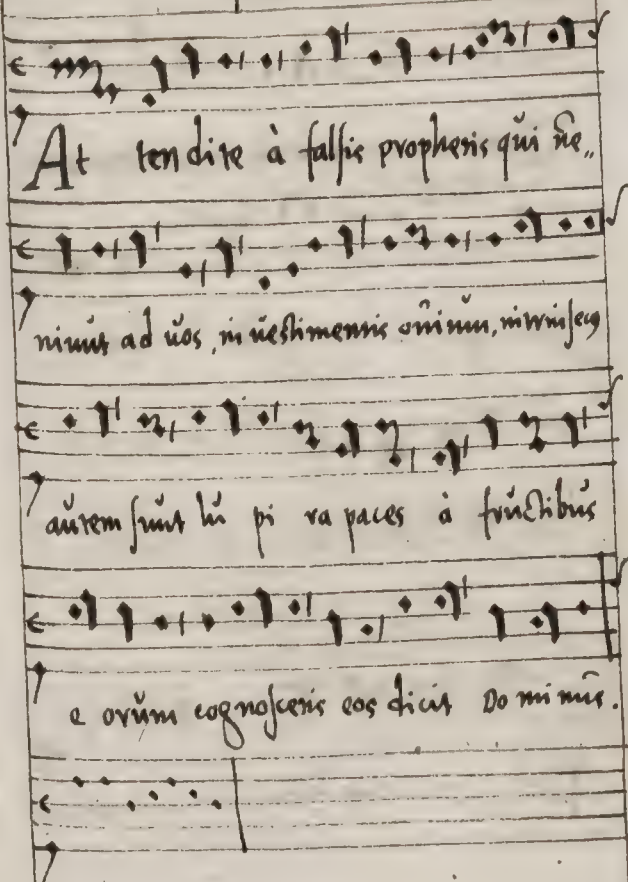 At tendite à falsis prophetis qui ve„
niunt ad vos, in vestimentis ovium, intrinsecus
autem sunt lu pi ra paces à fructibus
e orum cognoscetis eos dicit Do minus.